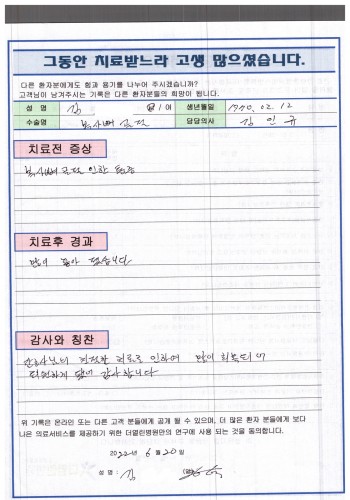 그동안 치료받느라 고생 많으셨습니다.
다른 환자분에게도 힘과 용기를 나누어 주시겠습니까?
고객님이 남겨주시는 기록은 다른 환자분들의 희망이 됩니다.
성 명 김 남 / 여 생년월일 1970.02.12
수술명 복사뼈 골절 담당의사 김인규
치료전 증상
복사뼈 골절 인한 통증
치료후 경과
많이 좋아 졌습니다
감사와 칭찬
친절한 치료로 인하여 많이 회복되어
퇴원하게 됨에 감사합니다
위 기록은 온라인 또는 다른 고객 분들에게 공개 될 수 있으며, 더 많은 환자 분들에게 보다
나은 의료서비스를 제공하기 위한 더열린병원만의 연구에 사용 되는 것을 동의합니다.
2022년 6월 20일
성 명 : 김